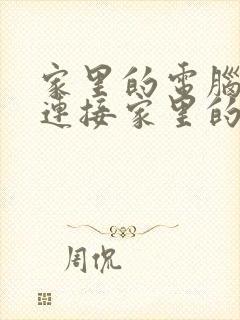 家里的电腦
連接家里的
周侃